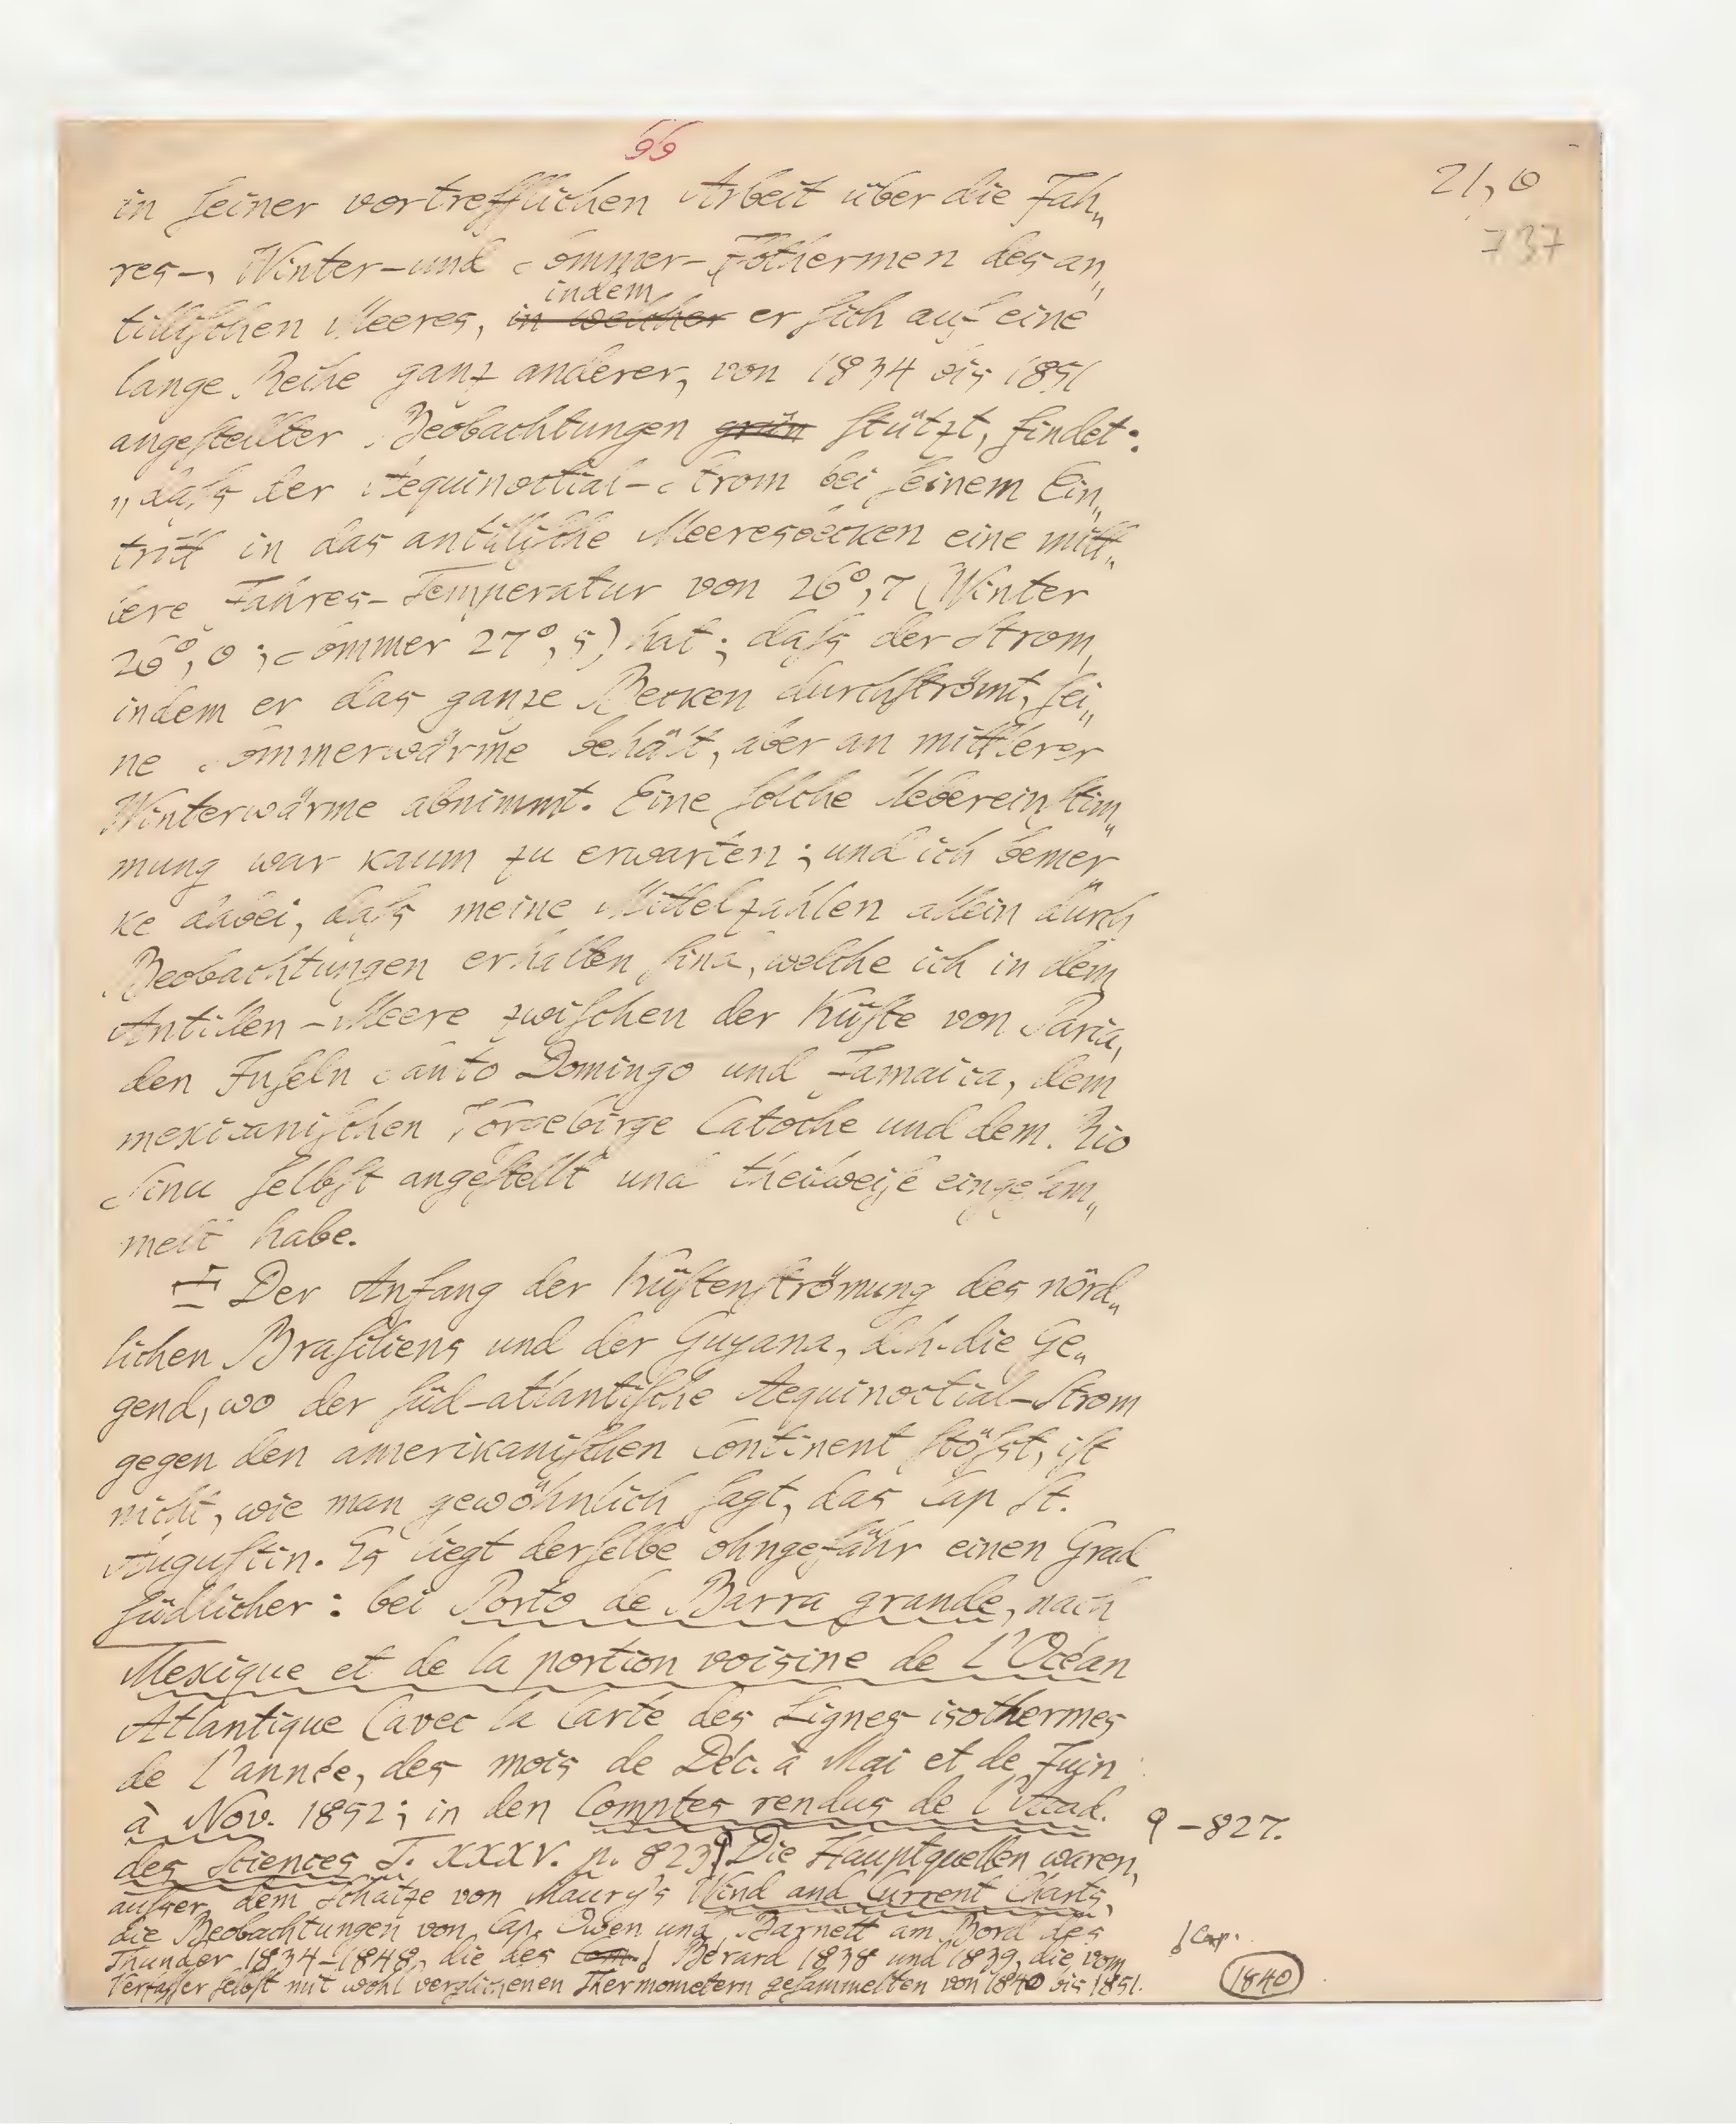 55
21,0
737
in ſeiner vortrefflichen Arbeit über die Jah„
res-, Winter- und Sommer-Iſothermen des an„
indem
tilliſchen Meeres, in welcher er ſich auf eine
lange Reihe ganz anderer, von 1834 bis 1851
angeſtellter Beobachtungen grün ſtützt, findet:
„daſs der Aequinoctial-Strom bei ſeinem Ein„
tritt in das antilliſche Meeresbecken eine mitt„
lere Jahres-Temperatur von 26°,7 (Winter
26°,0; Sommer 27°,5) hat; daſs der Strom,
indem er das ganze Becken durchſtrömt, ſei„
ne Sommerwärme behält, aber an mittlerer
Winterwärme abnimmt. Eine ſolche Uebereinſtim„
mung war kaum zu erwarten; und ich bemer„
ke dabei, daſs meine Mittelzahlen allein durch
Beobachtungen erhalten ſind, welche ich in dem
Antillen-Meere zwiſchen der Küſte von Paria,
den Inſeln Santo Domingo und Jamaica, dem
mexicaniſchen Vorgebirge Catoche und dem Rio
Sinu ſelbſt angeſtellt und theilweiſe eingeſam„
melt habe.
Der Anfang der Küſtenſtrömung des nörd„
lichen Braſiliens und der Guyana, d. h. die Ge„
gend, wo der ſüd-atlantiſche Aequinoctial-Strom
gegen den amerikaniſchen Continent ſtöſst, iſt
nicht, wie man gewöhnlich ſagt, das Cap St.
Auguſtin. Es liegt derſelbe ohngefähr einen Grad
ſüdlicher: bei Porto de Barra grande, nach
Mexique et de la portion voisine de l'Océan
Atlantique (avec la Carte des Lignes isothermes
de l'année, des mois de Déc. à Mai et de Juin
à Nov. 1852; in den Comptes rendus de l'Acad.
9-827.
des Sciences T. XXXV. p. 823) Die Hauptquellen waren,
auſser dem Schatze von Maury's Wind and Current Charts,
die Beobachtungen von Cap. Owen und Barnett am Bord des
Cap.
Thunder 1834-1848, die des Com. Bérard 1838 und 1839, die vom
Verfaſſer ſelbſt mit wohl verglichenen Thermometern geſammelten von 1840 bis 1851.
1840